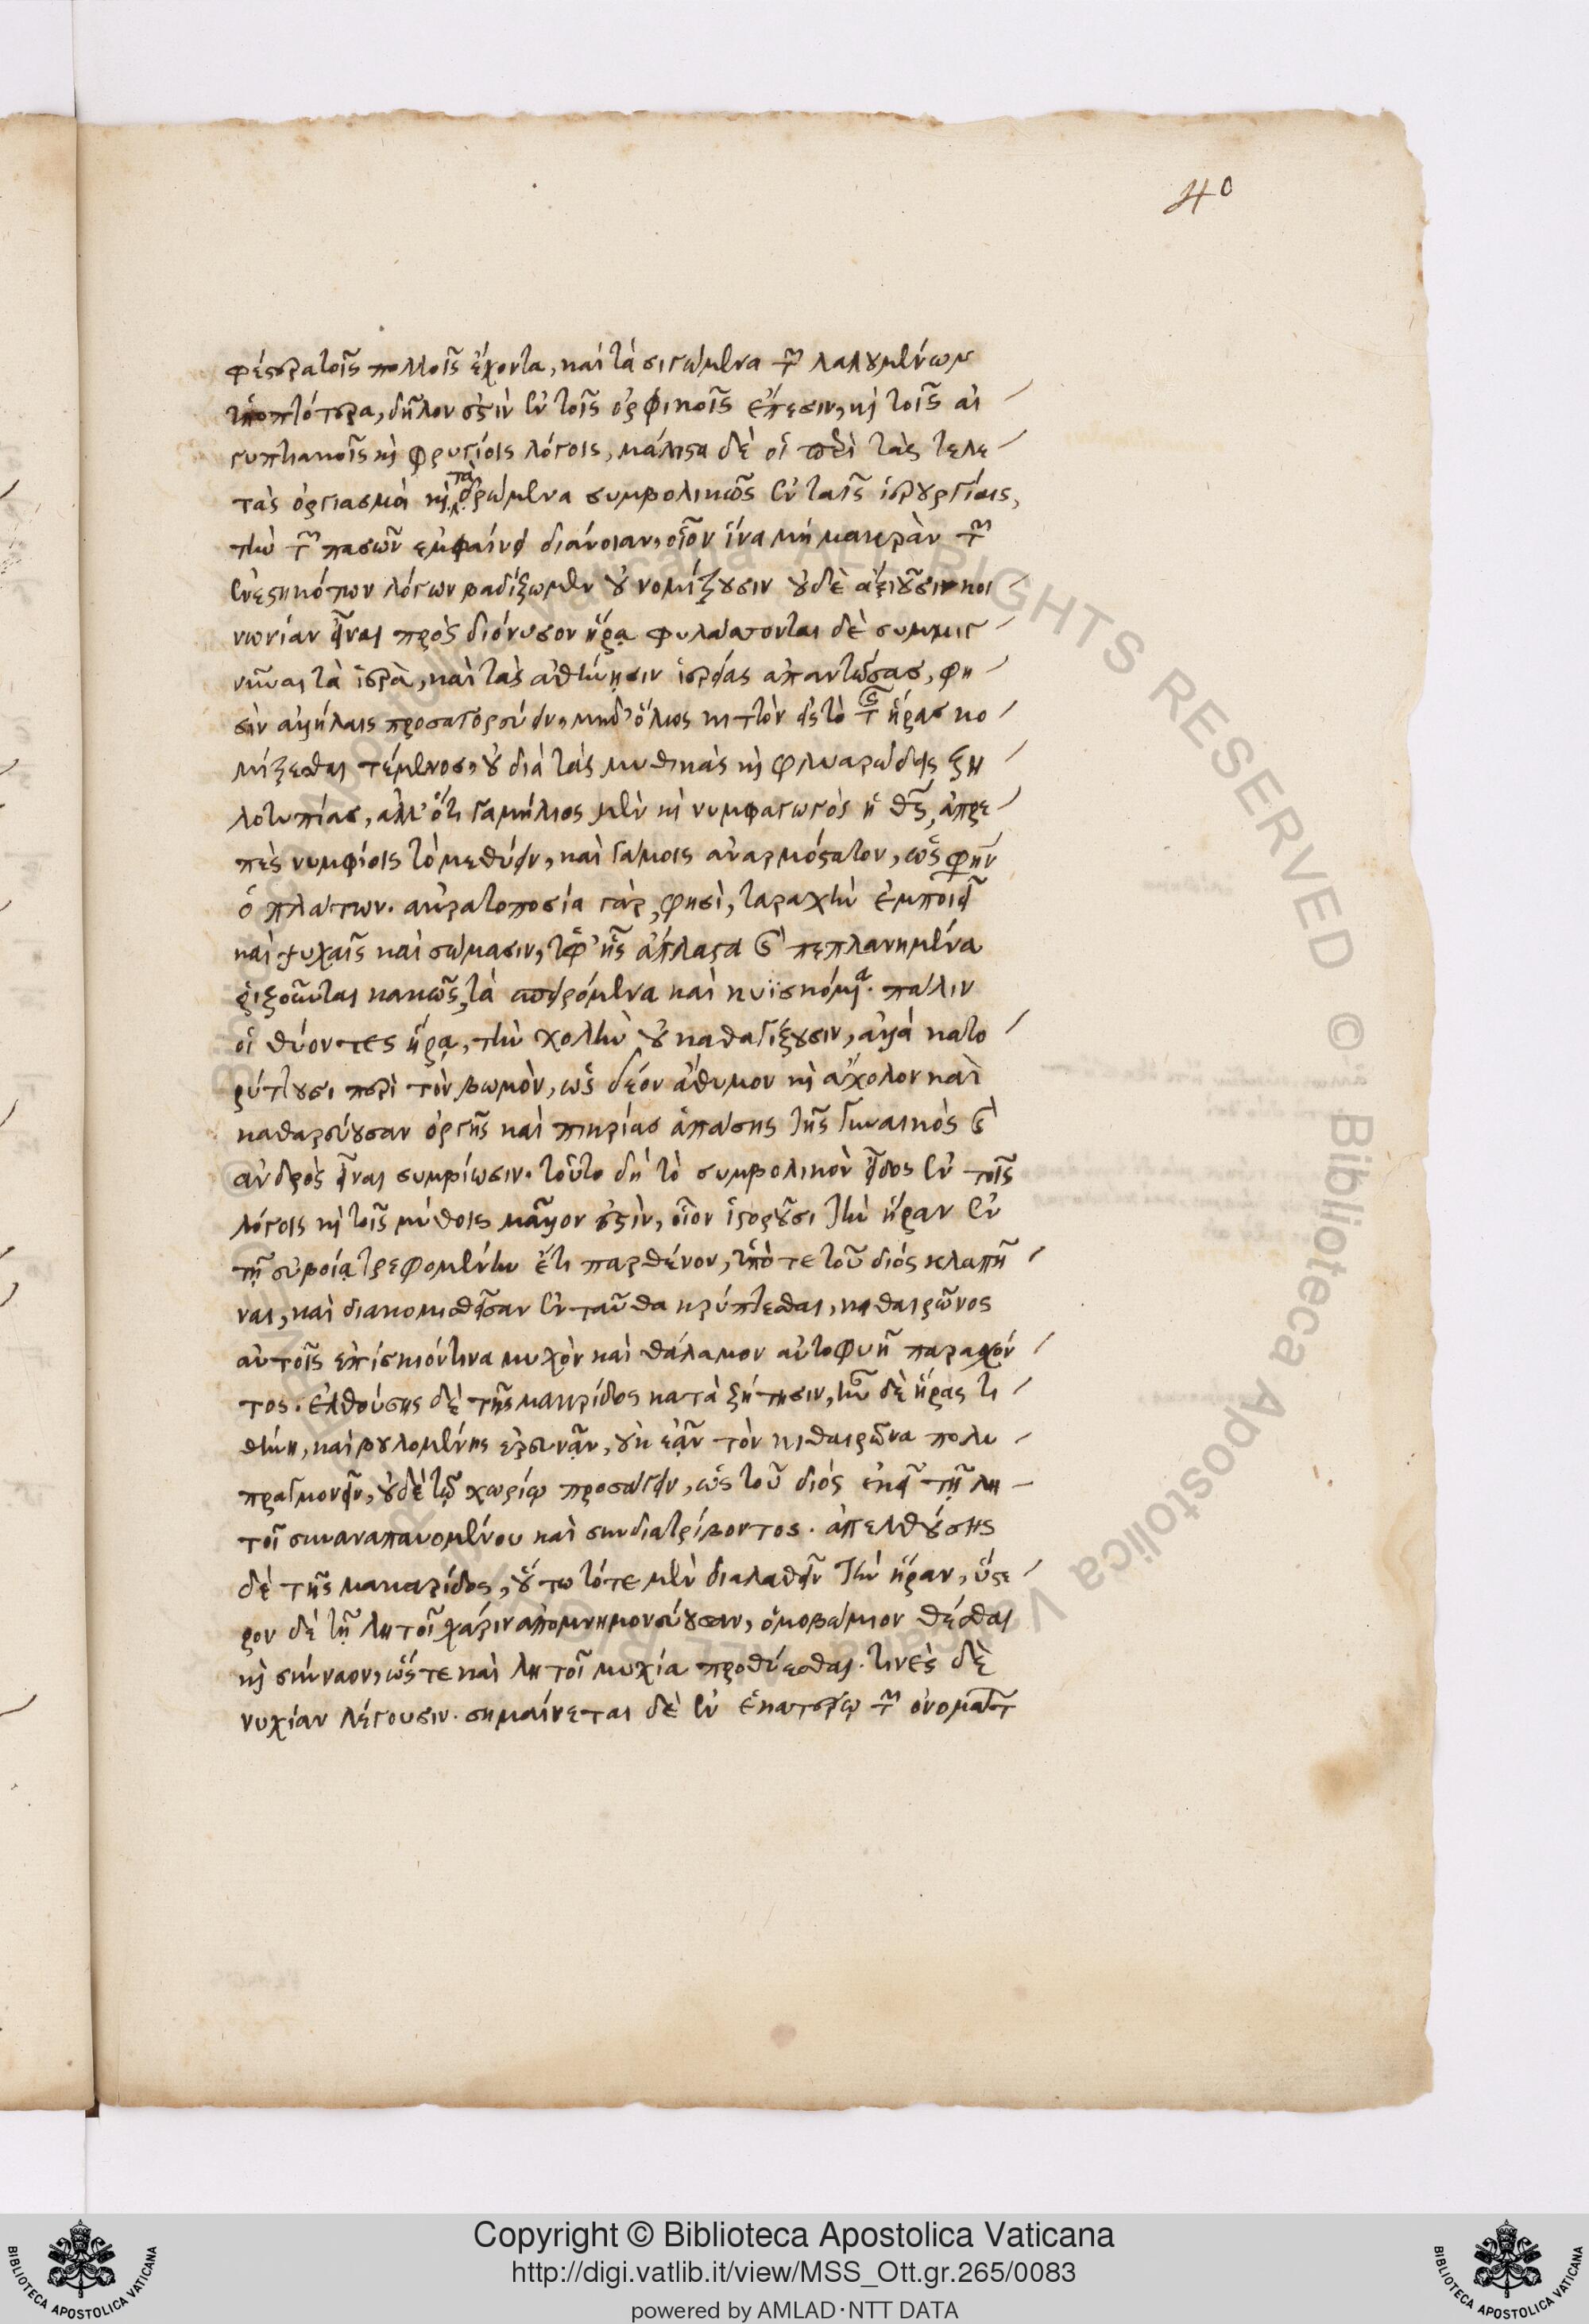 40
φέστερα τοῖς πολλοῖς ἔχοντα, καὶ τὰ σιγώμενα τῶν λαλουμένων
ὑποπτότερα, δῆλόν ἐστιν ἐν τοῖς ὀρφικοῖς ἔπεσιν, καὶ τοῖς αἰ
γυπτιακοῖς καὶ φρυγίοις λόγοις, μάλιστα δὲ οἱ περὶ τὰς τελε
τὰς ὀργιασμοὶ καὶ τὰ δρώμενα συμβολικῶς ἐν ταῖς ἱερουργίαις,
τὴν τῶν πασῶν ἐμφαίνει διάνοιαν, οἷον ἵνα μὴ μακρὰν τῶν
ἐνεστηκότων λόγων βαδίζωμεν οὐ νομίζουσιν οὐδὲ ἀξιοῦσιν κοι
νωνίαν εἶναι πρὸς διόνυσον ἥρᾳ φυλάσσονται δὲ συμμιγ
νῦναι τὰ ἱερὰ, καὶ τὰς ἀθήνῃσιν ἱερείας ἀπαντώσας, φη
σὶν ἀλλήλαις προσαγορεύειν, μηδ' ὅλως κιττὸν εἰς τὸ τῆς ἥρας κο
μίζεσθαι τέμενος, οὐ διὰ τὰς μυθικὰς καὶ φλυαρώδεις ζη
λοτυπίας, ἀλλ' ὅτι γαμήλιος μὲν καὶ νυμφαγωγὸς ἡ θεὸς, ἀπρε
πὲς νυμφίοις τὸ μεθύειν, καὶ γάμοις ἀναρμόστατον, ὥς φησιν
ὁ πλάτων. ἀκρατοποσία γάρ, φησὶ, ταραχὴν ἐμποιεῖ
καὶ ψυχαῖς καὶ σώμασιν, ὑφ' ἧς ἄπλαστα καὶ πεπλανημένα
ῥιζοῦνται κακῶς, τὰ σπειρόμενα καὶ κυϊσκόμενα. πάλιν
οἱ θύοντες ἥρᾳ, τὴν χολὴν οὐ καθαγίζουσιν, ἀλλὰ κατο
ρύττουσι περὶ τὸν βωμὸν, ὡς δέον ἄθυμον καὶ ἄχολον καὶ
καθαρεύουσαν ὀργῆς καὶ πικρίας ἁπάσης τῆς γυναικὸς καὶ
ἀνδρὸς εἶναι συμβίωσιν. τοῦτο δὴ τὸ συμβολικὸν εἶδος ἐν τοῖς
λόγοις καὶ τοῖς μύθοις μᾶλλον ἐστὶν, οἷον ἱστοροῦσι τὴν ἥραν ἐν
τῇ εὐβοίᾳ τρεφομένην ἔτι παρθένον, ὑπό τε τοῦ διός κλαπῆ
ναι, καὶ διακομισθεῖσαν ἐνταῦθα κρύπτεσθαι, κιθαιρῶνος
αὐτοῖς ἐπίσκιόν τινα μυχὸν καὶ θάλαμον αὐτοφυῆ παρασχόν
τος. ἐλθούσης δὲ τῆς μακρίδος κατὰ ζήτησιν, ἦν δὲ ἥρας τι
θήνη, καὶ βουλομένης ἐρευνᾶν, οὐκ ἐᾶν τὸν κιθαιρῶνα πολυ
πραγμονεῖν, οὐδὲ τῷ χωρίῳ προσάγειν, ὡς τοῦ διός ἐκεῖ τῇ λη
τοῖ συναναπαυομένου καὶ συνδιατρίβοντος. ἀπελθούσης
δὲ τῆς μακαρίδος, οὕτω τότε μὲν διαλαθεῖν τὴν ἥραν, ὕστε
ρον δὲ τῇ λητοῖ χάριν ἀπομνημονεύουσαν, ὁμοβώμιον θέσθαι
καὶ σύνναον, ὥστε καὶ λητοῖ μυχίᾳ προθύεσθαι. τινὲς δὲ
νυχίαν λέγουσιν. σημαίνεται δὲ ἐν ἑκατέρῳ τῶν ὀνομάτων
Copyright © Biblioteca Apostolica Vaticana
http://digi.vatlib.it/view/MSS_Ott.gr.265/0083
powered by AMLAD·NTT DATA